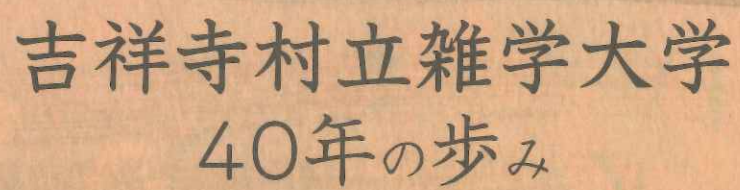 吉祥寺村立雑学大学
40年の歩み